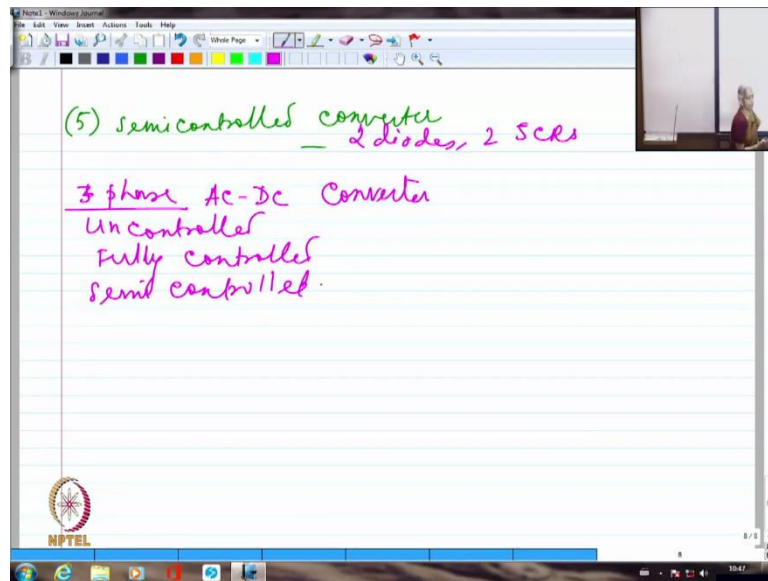 Note1 - Windows Journal
File Edit View Insert Actions Tools Help
Whole Page
B I
(5) Semicontrolled converter
— 2 diodes, 2 SCRs
3 phase AC-DC Converter
Uncontrolled
Fully controlled
Semi controlled.
NPTEL
8/8
10:47